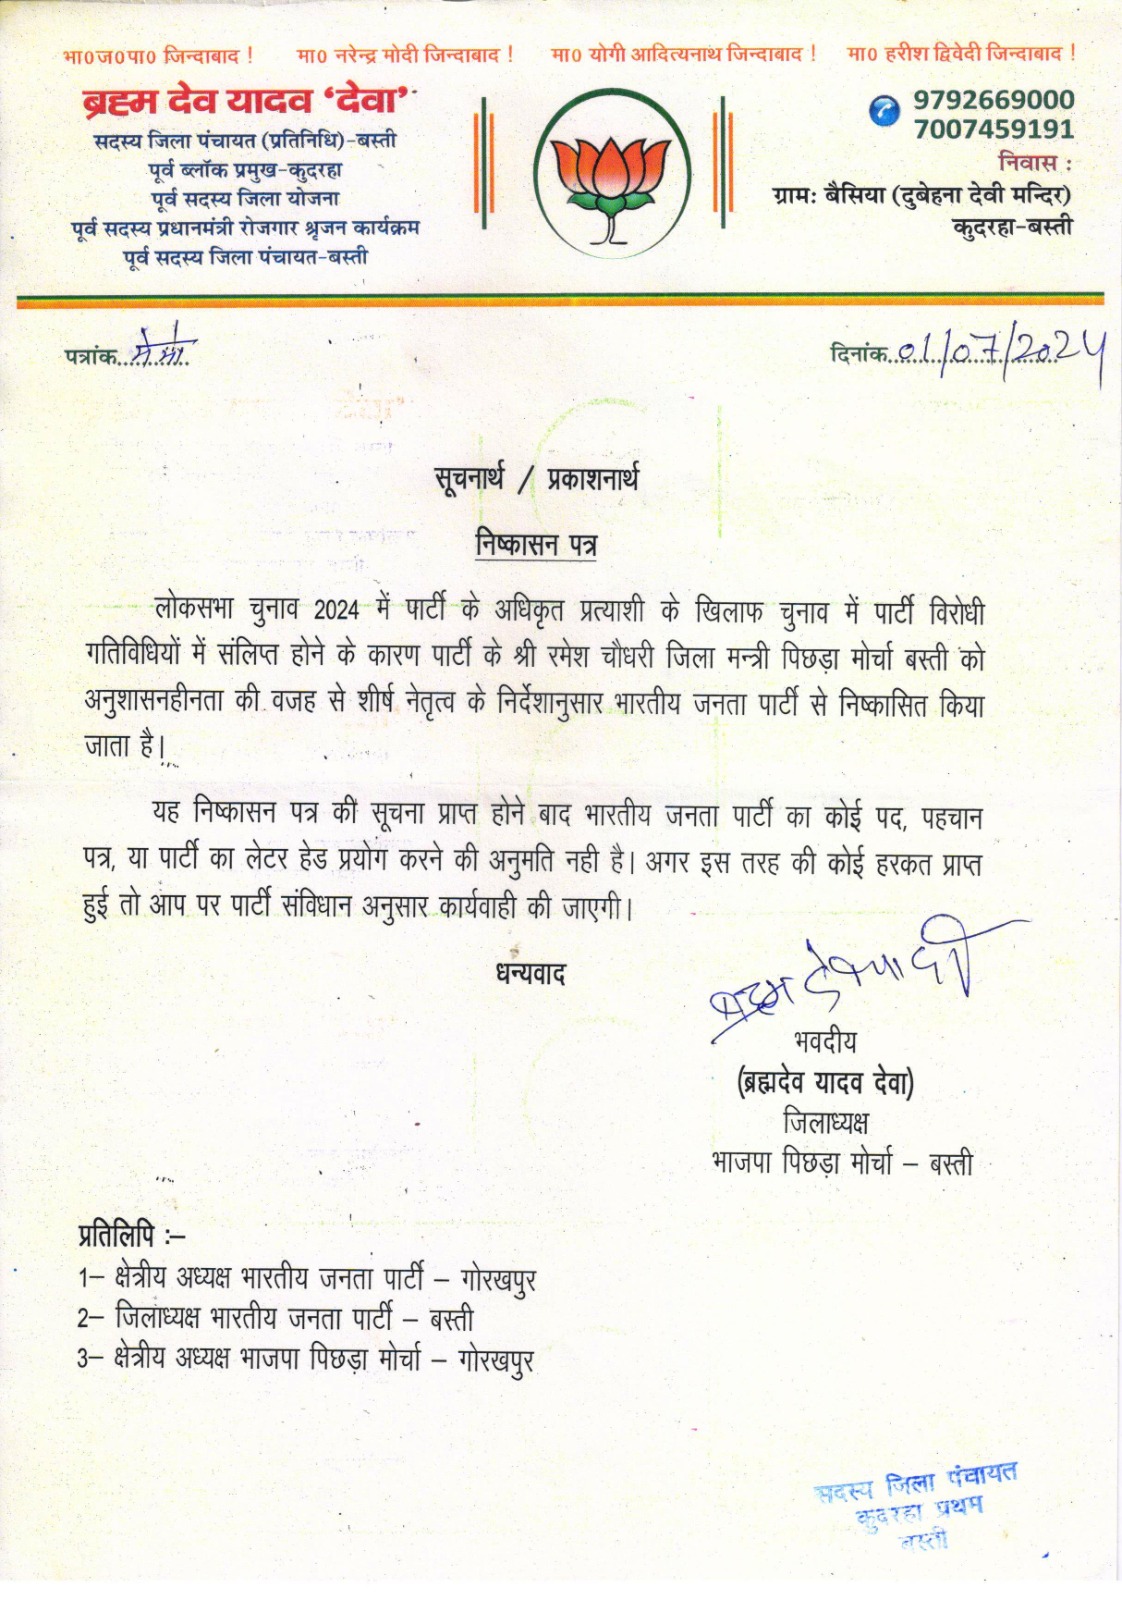 भा0ज0पा0 जिन्दाबाद ! मा0 नरेन्द्र मोदी जिन्दाबाद ! मा0 योगी आदित्यनाथ जिन्दाबाद ! मा0 हरीश द्विवेदी जिन्दाबाद !
ब्रह्म देव यादव ‘देवा’
सदस्य जिला पंचायत (प्रतिनिधि)-बस्ती
पूर्व ब्लॉक प्रमुख-कुदरहा
पूर्व सदस्य जिला योजना
पूर्व सदस्य प्रधानमंत्री रोजगार श्रृजन कार्यक्रम
पूर्व सदस्य जिला पंचायत-बस्ती
9792669000
7007459191
निवास :
ग्राम: बैसिया (दुबेहना देवी मन्दिर)
कुदरहा-बस्ती
पत्रांक.............
दिनांक 01/07/2024
सूचनार्थ / प्रकाशनार्थ
निष्कासन पत्र
लोकसभा चुनाव 2024 में पार्टी के अधिकृत प्रत्याशी के खिलाफ चुनाव में पार्टी विरोधी
गतिविधियों में संलिप्त होने के कारण पार्टी के श्री रमेश चौधरी जिला मन्त्री पिछड़ा मोर्चा बस्ती को
अनुशासनहीनता की वजह से शीर्ष नेतृत्व के निर्देशानुसार भारतीय जनता पार्टी से निष्कासित किया
जाता है।
यह निष्कासन पत्र की सूचना प्राप्त होने बाद भारतीय जनता पार्टी का कोई पद, पहचान
पत्र, या पार्टी का लेटर हेड प्रयोग करने की अनुमति नही है। अगर इस तरह की कोई हरकत प्राप्त
हुई तो आप पर पार्टी संविधान अनुसार कार्यवाही की जाएगी।
धन्यवाद
भवदीय
(ब्रह्मदेव यादव देवा)
जिलाध्यक्ष
भाजपा पिछड़ा मोर्चा – बस्ती
प्रतिलिपि :–
1– क्षेत्रीय अध्यक्ष भारतीय जनता पार्टी – गोरखपुर
2– जिलाध्यक्ष भारतीय जनता पार्टी – बस्ती
3– क्षेत्रीय अध्यक्ष भाजपा पिछड़ा मोर्चा – गोरखपुर
सदस्य जिला पंचायत
कुदरहा प्रथम
बस्ती